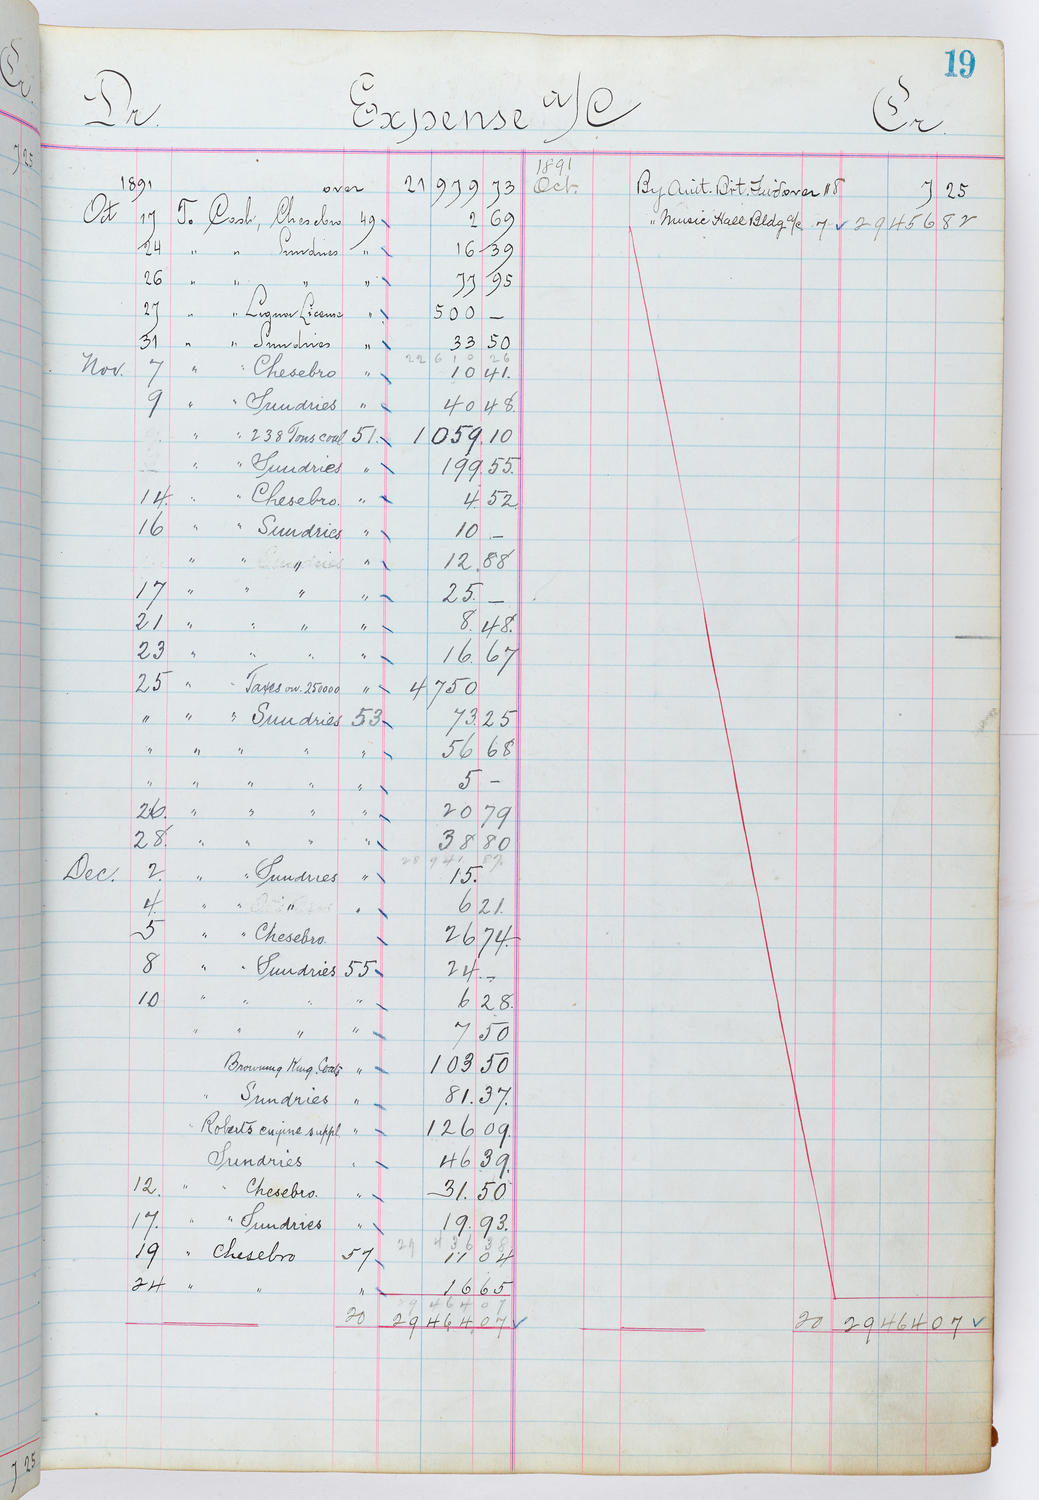 Cr.
7 25
19
Dr. Expense a/c Cr.
1891 over 21 979 73
Oct 17 To Cash, Chesebro 49 2 69
24 " " Sundries " 16 39
26 " " " " 77 95
27 " " Liquor License " 500 —
31 " " Sundries " 33 50
22 610 26
Nov. 7 " " Chesebro " 10 41.
9 " " Sundries " 40 48
" " 238 Tons coal 51. 1 059.10
" " Sundries " 199.55.
14. " " Chesebro. " 4.52
16 " " Sundries " 10 —
" " " " 12.88
17 " " " " 25. —
21 " " " " 8.48.
23 " " " " 16.67
25 " " Taxes on. 250000 " 4750
" " " Sundries 53 73.25
" " " " " 56 68
" " " " " 5 —
26. " " " " 20 79
28. " " " " 38 80
28 941 82
Dec. 2. " " Sundries " 15.
4. " " " " 6 21.
5 " " Chesebro. 26 74
8 " " Sundries 55 24. —
10 " " " " 6 28.
" " " " 7 50
Browning King. Coats " 103 50
" Sundries " 81.37.
" Roberts engine suppl. " 126 09.
Sundries " 46 39.
12. " " Chesebro. " 31.50
17. " " Sundries " 19.93.
29 436 38
19 " Chesebro 57 11 04
24 " " " 16 65
29 464 07
20 29 464.07
1891
Oct. By Amt. Brt. Fwd over 118 7 25
" Music Hall Bldg a/c 7 29456 82
20 29464 07
7 25